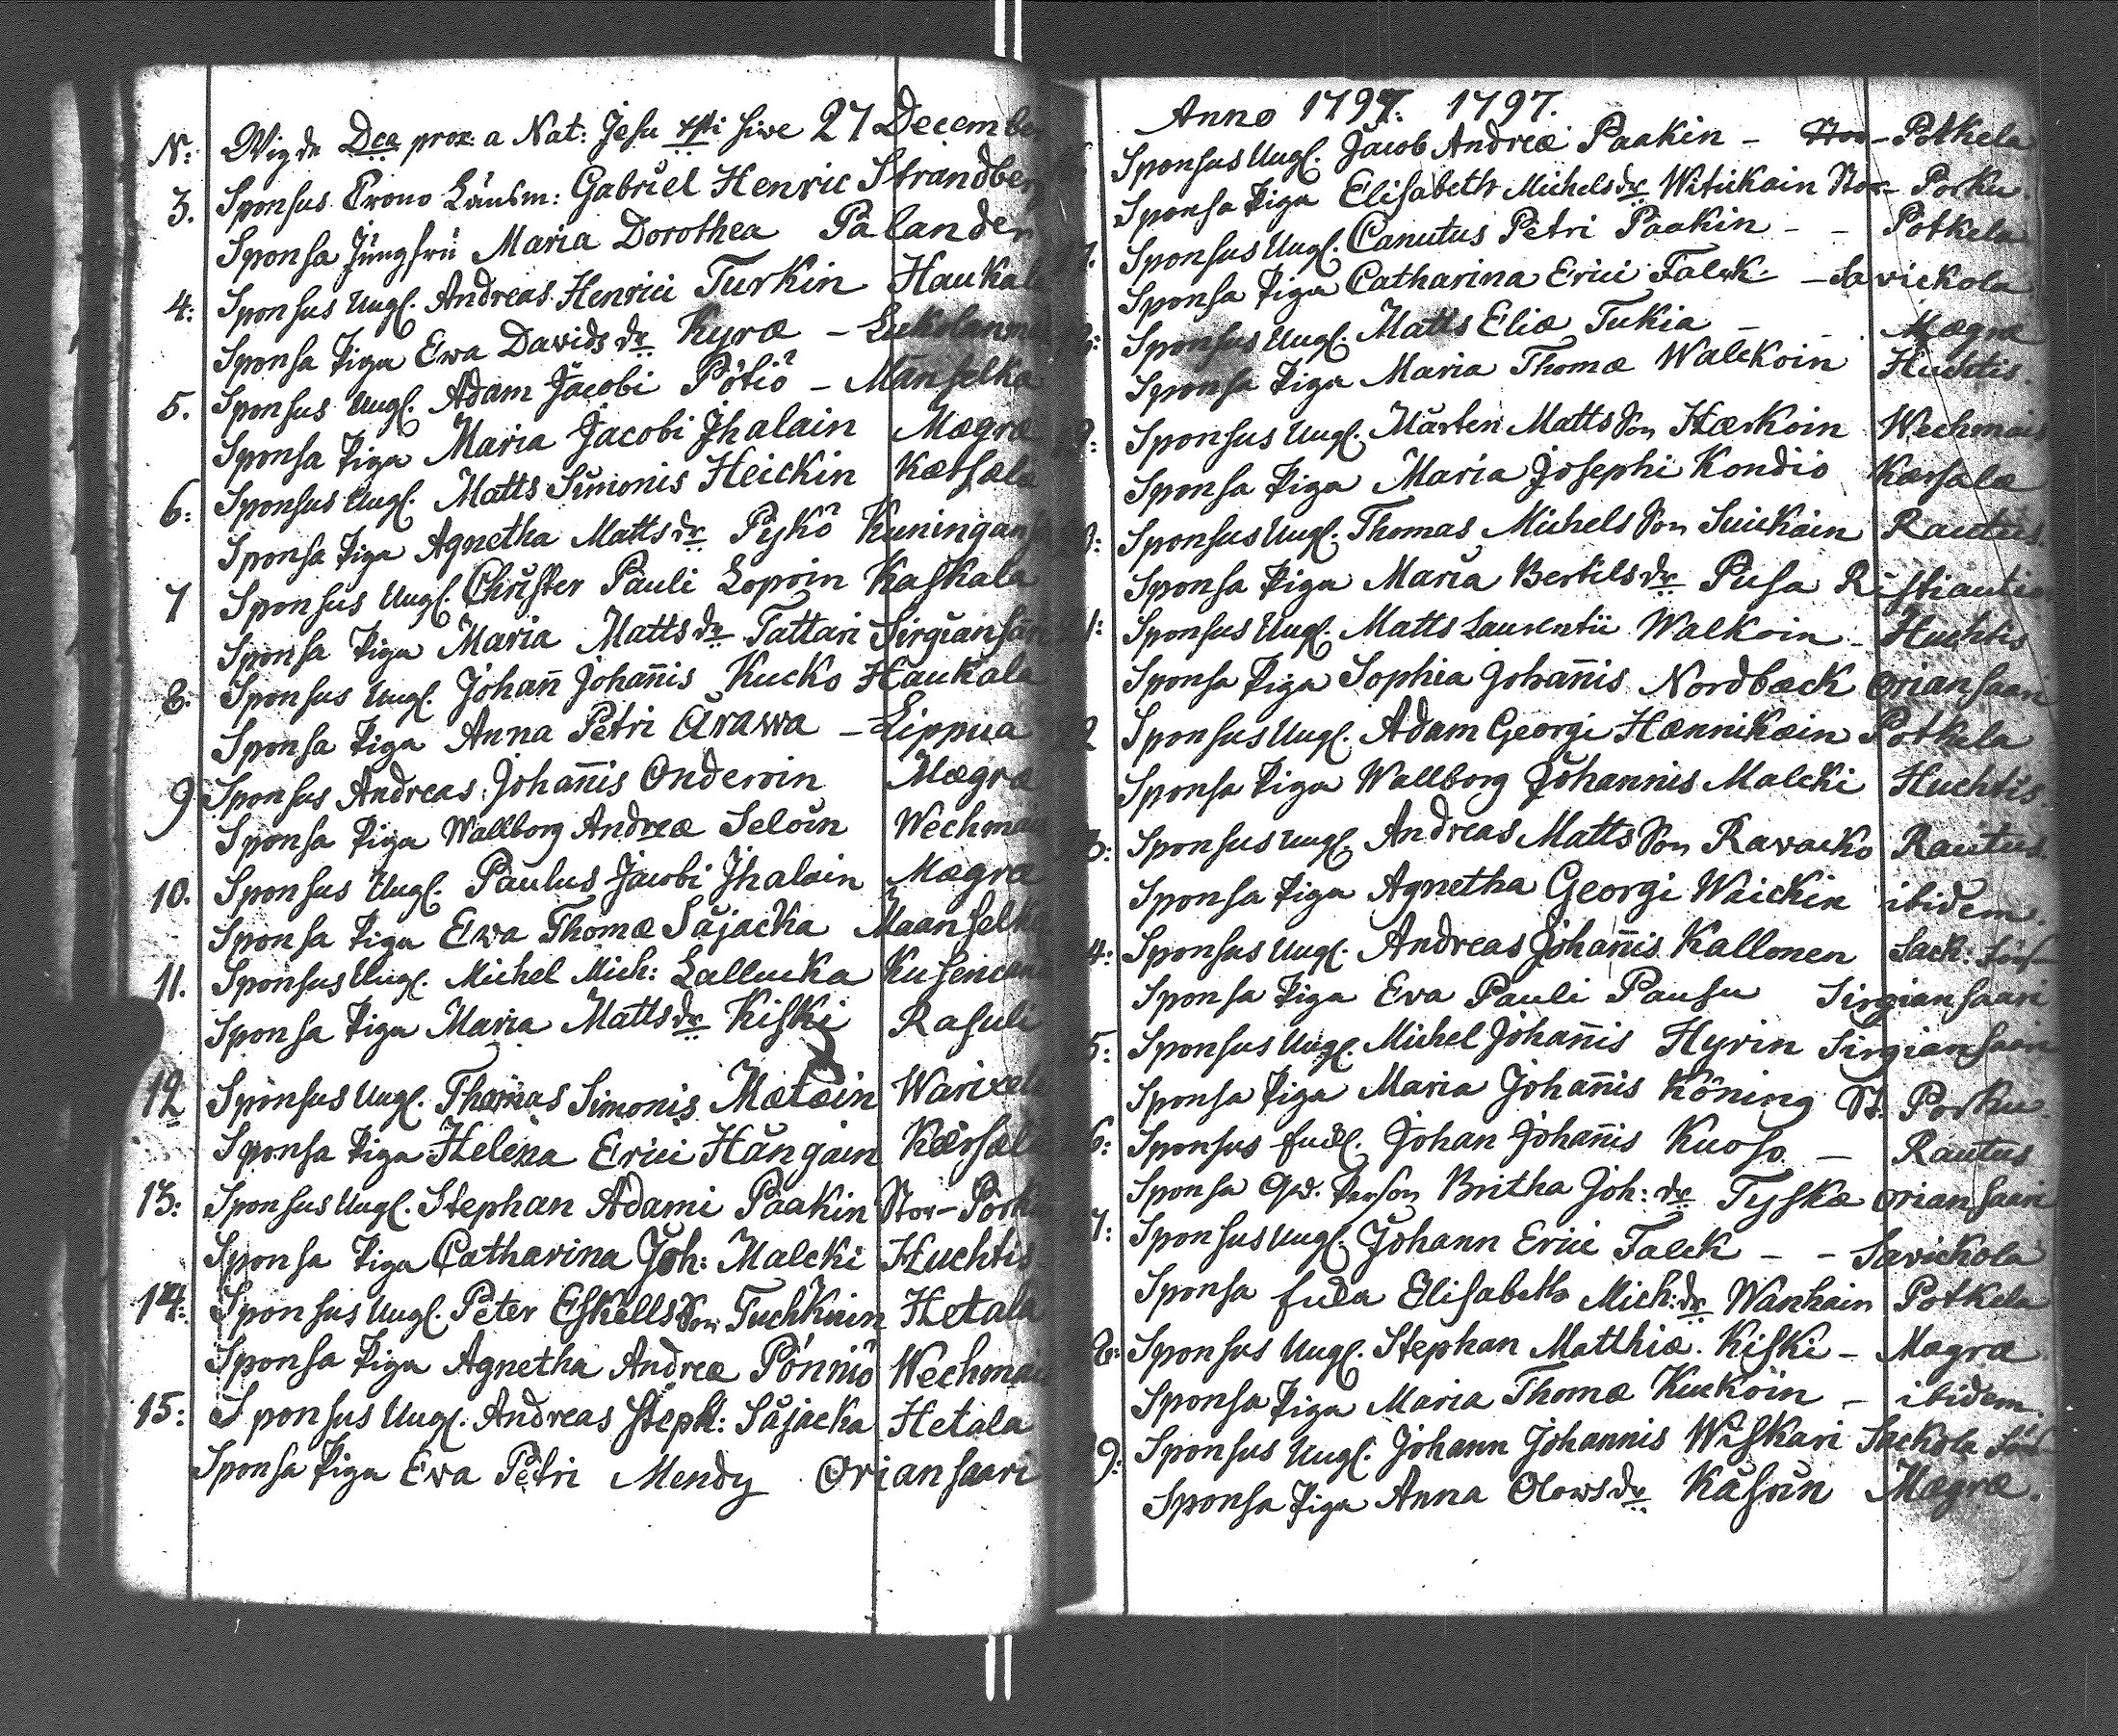 N: Wigde Dca prox: a Nat: Jesu Xsti sive 27 December
3. Sponsus Crono Länsm: Gabriel Henric Strandber
Sponsa Jungfru Maria Dorothea Palander
4: Sponsus Ungl. Andreas Henrici Turkin Haukala
Sponsa Piga Ewa Davids dr Kyræ –
5. Sponsus Ungl. Adam Jacobi Pötiö – Mänselka
Sponsa Piga Maria Jacobi Jhalain Mægræ
6: Sponsus Ungl. Matts Simonis Heickin Kætsælæ
Sponsa Piga Agnetha Matts dr Pyskö Kuningans
7 Sponsus Ungl. Christer Pauli Lopoin Kaskala
Sponsa Piga Maria Matts dr Tattari Sirgiansar
8: Sponsus Ungl. Johan̄ Johan̄is Kucko Haukala
Sponsa Piga Anna Petri Årawa – Lippua
9 Sponsus Andreas Johan̄is Onderoin Mægræ
Sponsa Piga Wallborg Andreæ Seloin Wechmai
10. Sponsus Ungl. Paulus Jacobi Jhalain Mægræ
Sponsa Piga Ewa Thomæ Säjacka Maanselka
11. Sponsus Ungl. Michel Mich: Lallucka
Sponsa Piga Maria Matts dr Kiski Rasuli
12 Sponsus Ungl. Thomas Simonis Mætæin Warixela
Sponsa Piga Helena Erici Hängäin Kærsæl
13: Sponsus Ungl. Stephan Adami Paakin Stor-Porku
Sponsa Piga Catharina Joh: Malcki Huchtis
14: Sponsus Ungl. Peter Eskells Son Tuchkuin Hetala
Sponsa Piga Agnetha Andreæ Pönniö Wechmai
15: Sponsus Ungl. Andreas Steph: Säjacka Hetala
Sponsa Piga Eva Petri Mendy Oriansaari
Anno 1797. 1797.
Sponsus Ungl. Jacob Andreæ Paakin – Stor – Potkela
Sponsa Piga Elisabeth Michels dr Witickain Stor Porku.
7. Sponsus Ungl. Canutus Petri Paakin – – Potkela
Sponsa Piga Catharina Erici Falck – Savickola
8: Sponsus Ungl. Matts Eliæ Tukia – – Mægræ
Sponsa Piga Maria Thomæ Walckoin Huchtis.
9: Sponsus Ungl. Mårten Matts Son Hærkoin Wechmais
Sponsa Piga Maria Josephi Kondio Kærsalæ
0: Sponsus Ungl. Thomas Michels Son Suickain Rautus.
Sponsa Piga Maria Bertils dr Pusa Ristiautio
1: Sponsus Ungl. Matts Laurentii Walkoin Huchtis
Sponsa Piga Sophia Johan̄is Nordbæck Oriansaari
2 Sponsus Ungl. Adam Georgi Hænnikæin Potkela
Sponsa Piga Wallborg Johannis Malcki Huchtis.
3: Sponsus Ungl. Andreas Matts Son Ravacko Rautus.
Sponsa Piga Agnetha Georgi Waickin ibidem.
4: Sponsus Ungl. Andreas Johan̄is Kallonen Sack: Sock
Sponsa Piga Eva Pauli Pausu Sirgiansaari
5: Sponsus Ungl. Michel Johan̄is Hyvin Sirgiansaari
Sponsa Piga Maria Johan̄is Köning St. Porku.
6: Sponsus Johan Johan̄is Kuoso – Rautus
Sponsa Qv. Person Britha Joh: dr Tyskæ Oriansaari
7: Sponsus Ungl. Johann Erici Falck – – Savickola
Sponsa Elisabeth Mich: dr Wanhain Potkela
8: Sponsus Ungl. Stephan Matthiæ Kiski – Mægræ
Sponsa Piga Maria Thomæ Kuckoin – ibidem.
9: Sponsus Ungl. Johann Johannis Wiskari Sackola Sock
Sponsa Piga Anna Olows dr Kasoin Mægræ.